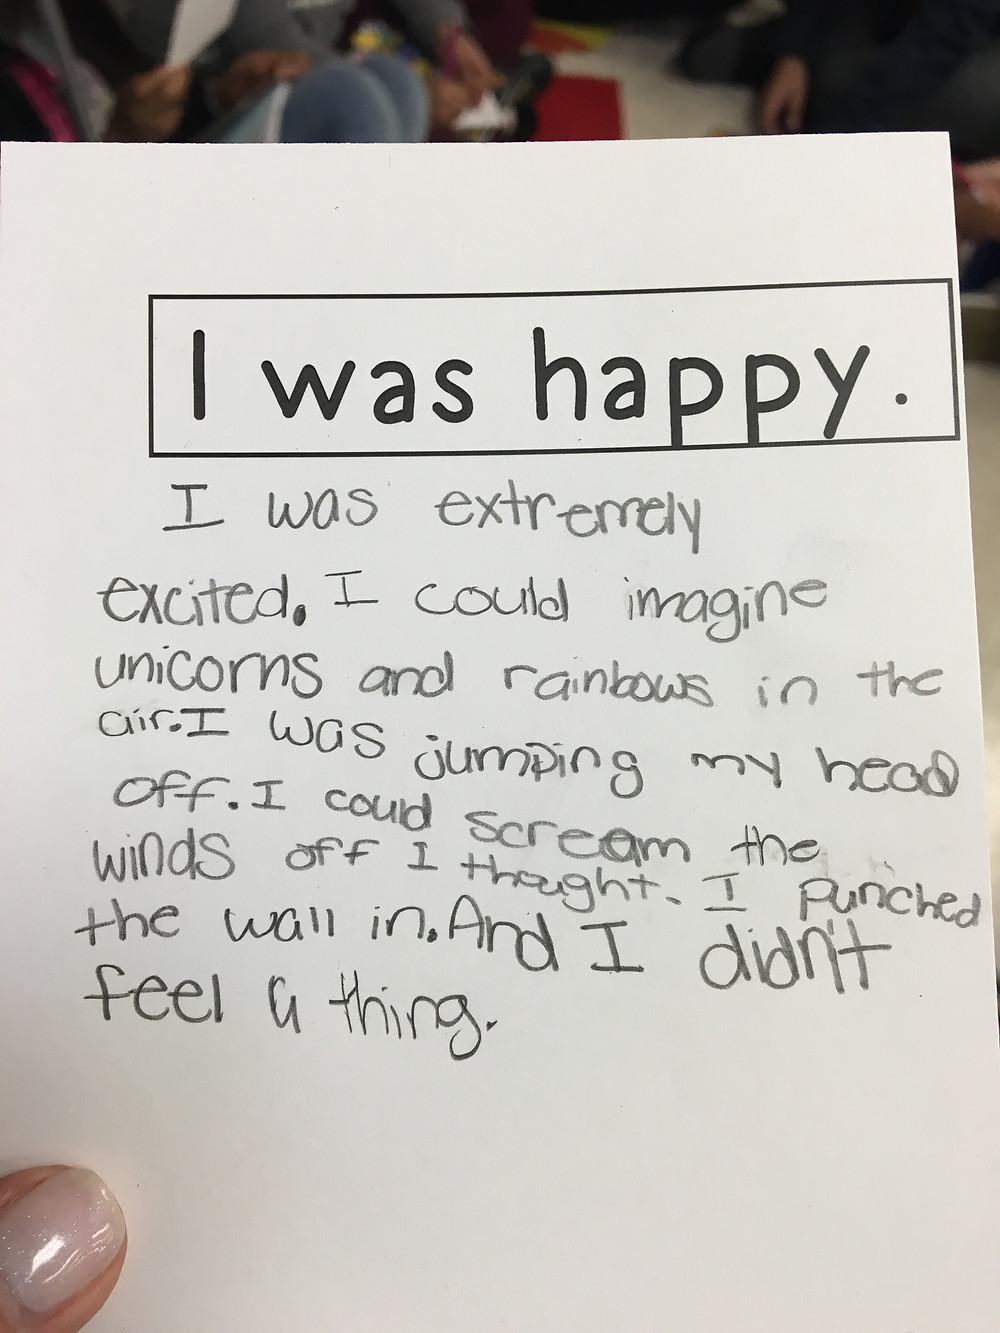 I was happy.
I was extremely
excited. I could imagine
unicorns and rainbows in the
air. I was jumping my head
off. I could scream the
winds off I thought. I punched
the wall in. And I didn't
feel a thing.